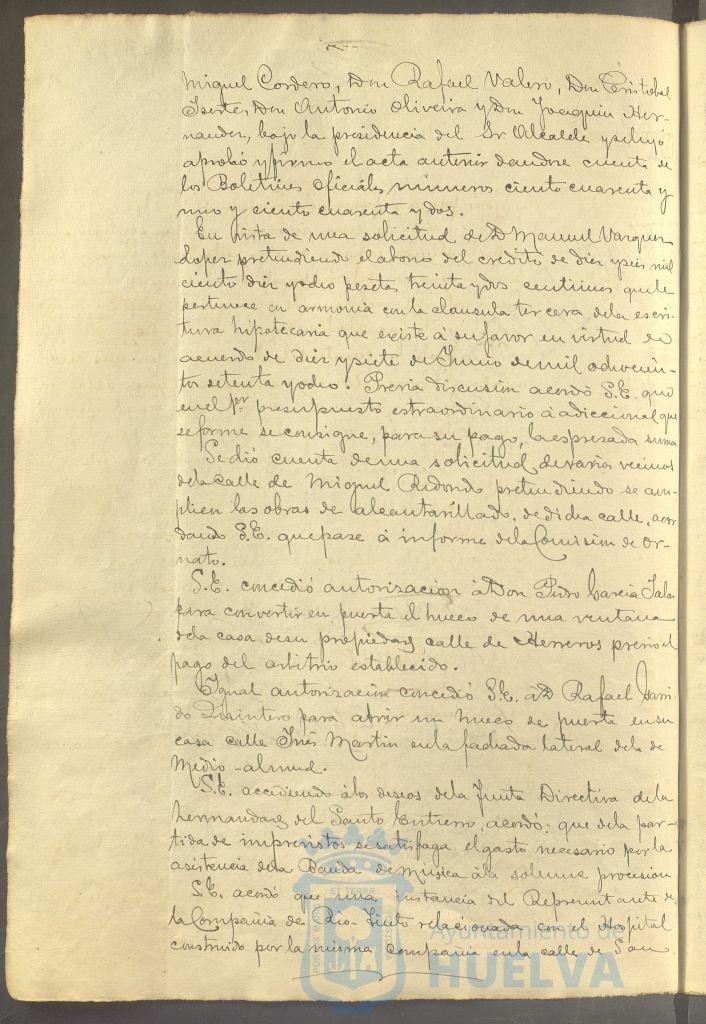 Miguel Cordero, Don Rafael Valero, Don Cristobal
Iserte, Don Antonio Oliveira y Don Joaquin Her-
nandez, bajo la presidencia del Sr Alcalde y se leyó
aprobó y firmo el acta anterior dandose cuenta de
los Boletines Oficiales numeros ciento cuarenta y
uno y ciento cuarenta y dos.
En vista de una solicitud de D Manuel Vazquez
Lopez pretendiendo el abono del credito de diez y seis mil
ciento diez y ocho pesetas treinta y dos centimos que le
pertenece en armonia con la clausula tercera de la escri-
tura hipotecaria que existe á su favor en virtud de
acuerdo de diez y siete de Junio de mil ochocien-
tos setenta y ocho. Previa discusion acordó S.E. que
en el 1er presupuesto estraordinario ó adiccional que
se forme se consigne, para su pago, la espresada suma
Se dió cuenta de una solicitud de varios vecinos
de la calle de Miguel Redondo pretendiendo se am-
plien las obras de alcantarillado, de dicha calle, acor
dando S.E. que pase á informe de la Comision de Or-
nato.
S.E. concedió autorizacion á Don Pedro Garcia
para convertir en puerta el hueco de una ventana
de la casa de su propiedad calle de Herreros previo el
pago del arbitrio establecido.
Igual autorización concedió S.E. á D Rafael Garri-
do Quintero para abrir un hueco de puerta en su
casa calle Inés Martin en la fachada lateral de la de
Medio-almud.
S.E. accediendo á los deseos de la Junta Directiva de la
hermandad del Santo Entierro, acordó: que de la par-
tida de imprevistos se satisfaga el gasto necesario por la
asistencia de la Banda de musica á la solemne procesion
S.E. acordó que una instancia del Representante de
la Compañia de Rio-Tinto relacionada con el Hospital
construido por la misma Compañia en la calle de San
Ayuntamiento de
HUELVA